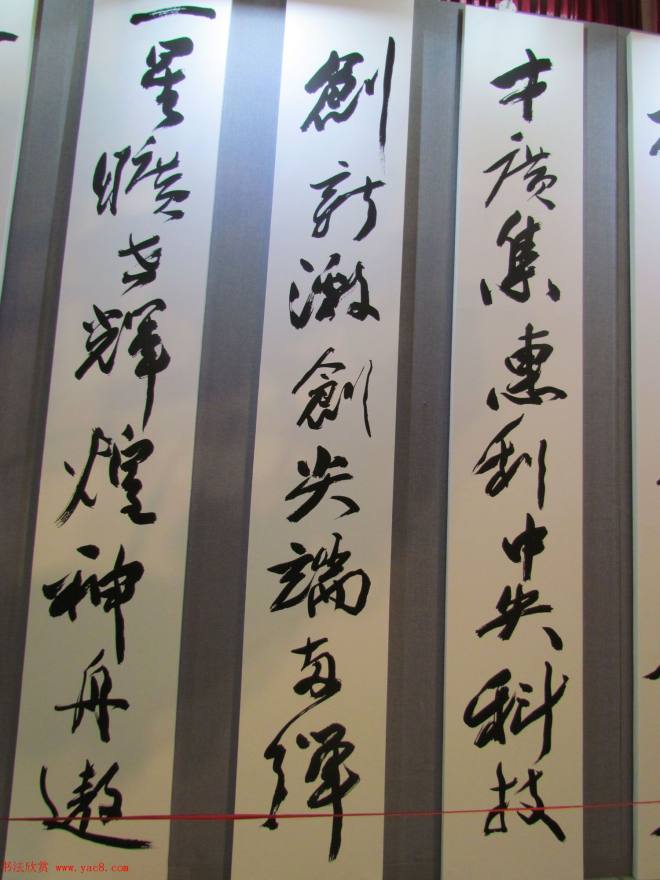 才广集惠利中央科技
創新激創尖端两弹
一星曠世輝煌神舟遨
书法欣赏 www.yac8.com